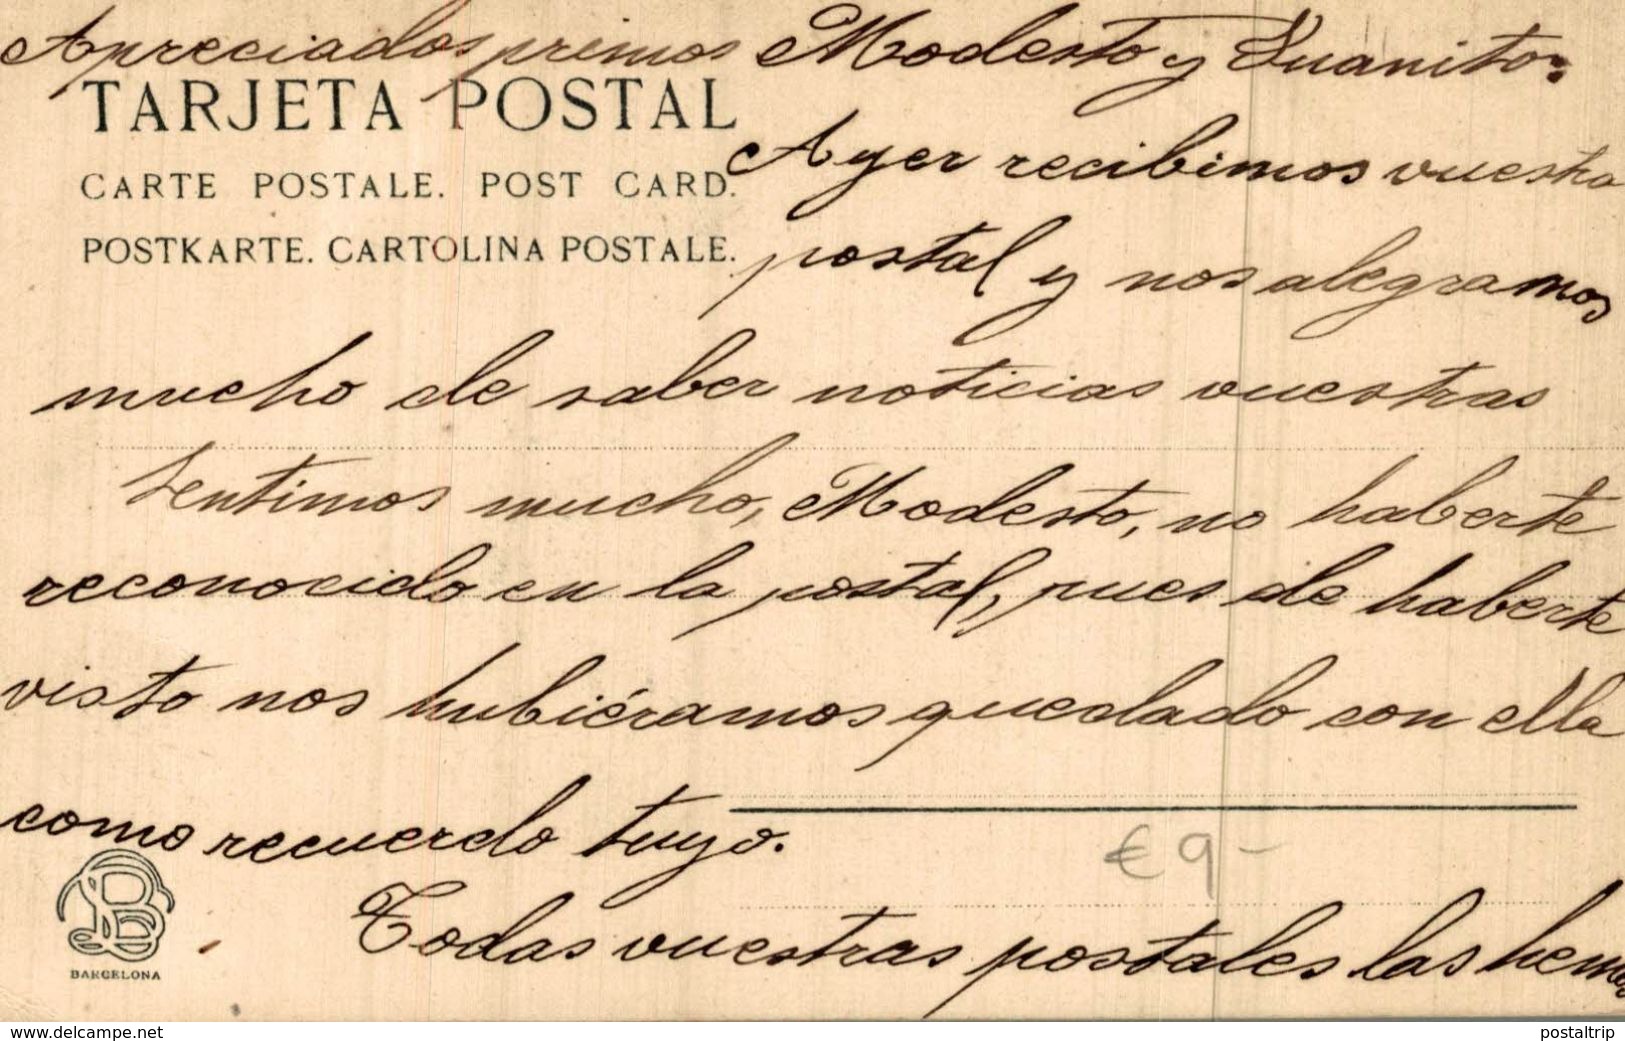 Apreciados primos Modesto y Juanito:
TARJETA POSTAL
Ayer recibimos vuestra
CARTE POSTALE. POST CARD.
postal y nos alegramos
POSTKARTE. CARTOLINA POSTALE.
mucho de saber noticias vuestras
Sentimos mucho, Modesto, no haberte
reconocido en la postal, pues de haberte
visto nos hubiéramos quedado con ella
como recuerdo tuyo.
€ 9-
Todas vuestras postales las hemos
BARCELONA
www.delcampe.net
postaltrip